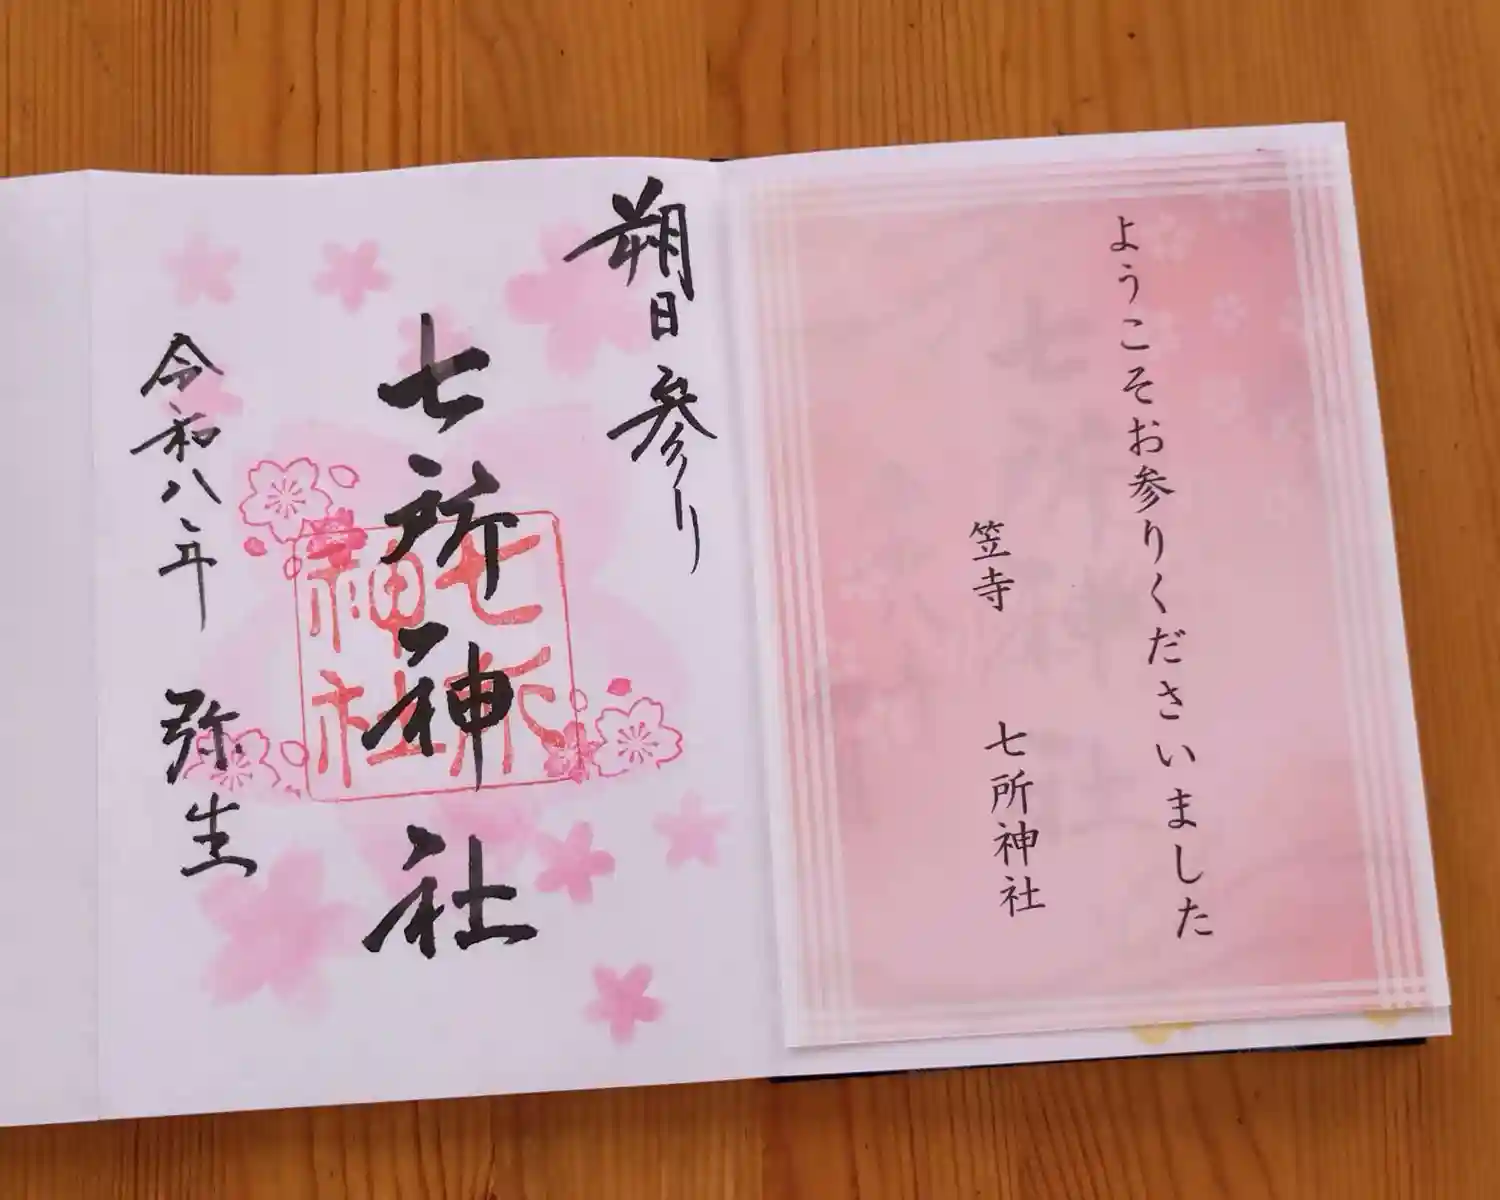 ようこそお参りくださいました
笠寺 七所神社
朔日参り
七所神社
七所神社
令和八年 弥生